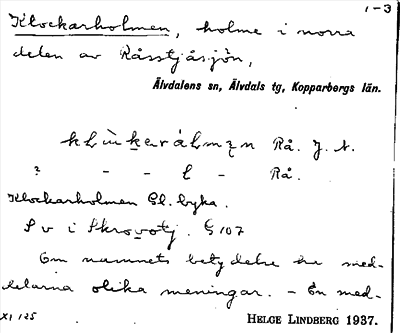 1-3
Klockarholmen, holme i norra
delen av Råsstjåsjön,
Älvdalens sn, Älvdals tg, Kopparbergs län.
Rå. J. A.
? - - - Rå.
Klockarholmen Gl. byka.
S v i Skrovotj. § 107
Om namnets betydelse ha med-
delarna olika meningar. - En med-
XI 125
HELGE LINDBERG 1937.